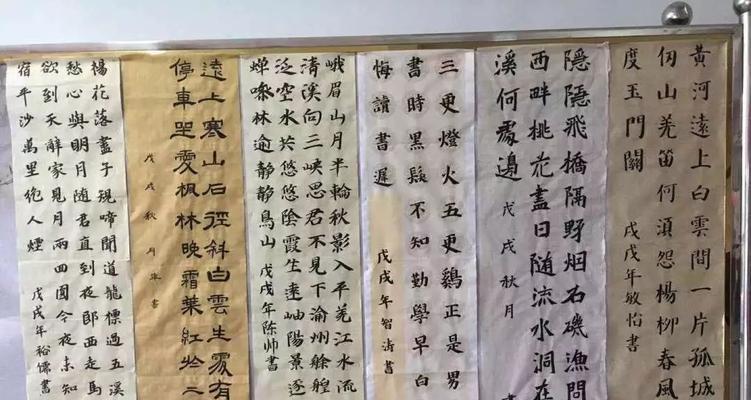 黄河遠上白雲間一片孤城
仞山羌笛何須怨楊柳春風
度玉門關 戊戌年敏怡書
隱隱飛橋隔野烟石磯漁問
西畔桃花盡日随流水洞在
溪何處邊 戊戌秋月 書
三更燈火五更鷄正是男
書時黑髮不知勤學早白
悔讀書遲 戊戌年智濤書
峨眉山月半輪秋影入平羌江水流
清溪向三峽思君不見下渝州艅艎
泛空水共悠悠陰霞生遠岫陽景逐
蟬噪林逾靜靜鳥山 戊戌年陈帅書
遠上寒山石徑斜白雲生處有
停車坐愛楓林晚霜葉紅於二
戊戌秋月 書
楊花落盡子規啼聞道龍標過五溪
愁心與明月随君直到夜郎西走馬
欲到天辭家見月兩回圓今夜未知
宿平沙萬里絶人煙 戊戌年裕儒書